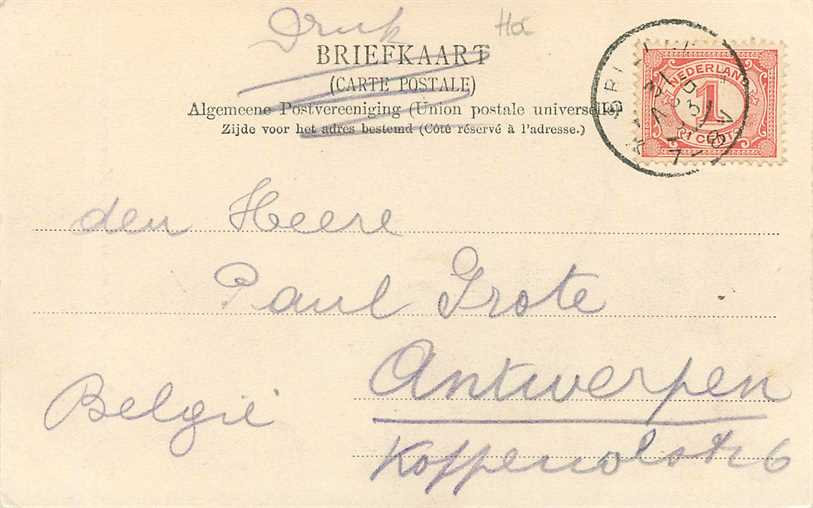 Druk
BRIEFKAART
(CARTE POSTALE)
Algemeene Postvereeniging (Union postale universelle)
Zijde voor het adres bestemd (Côté réservé à l'adresse.)
NEDERLAND
1
1 CENT
den Heere
Paul Grote
Antwerpen
België